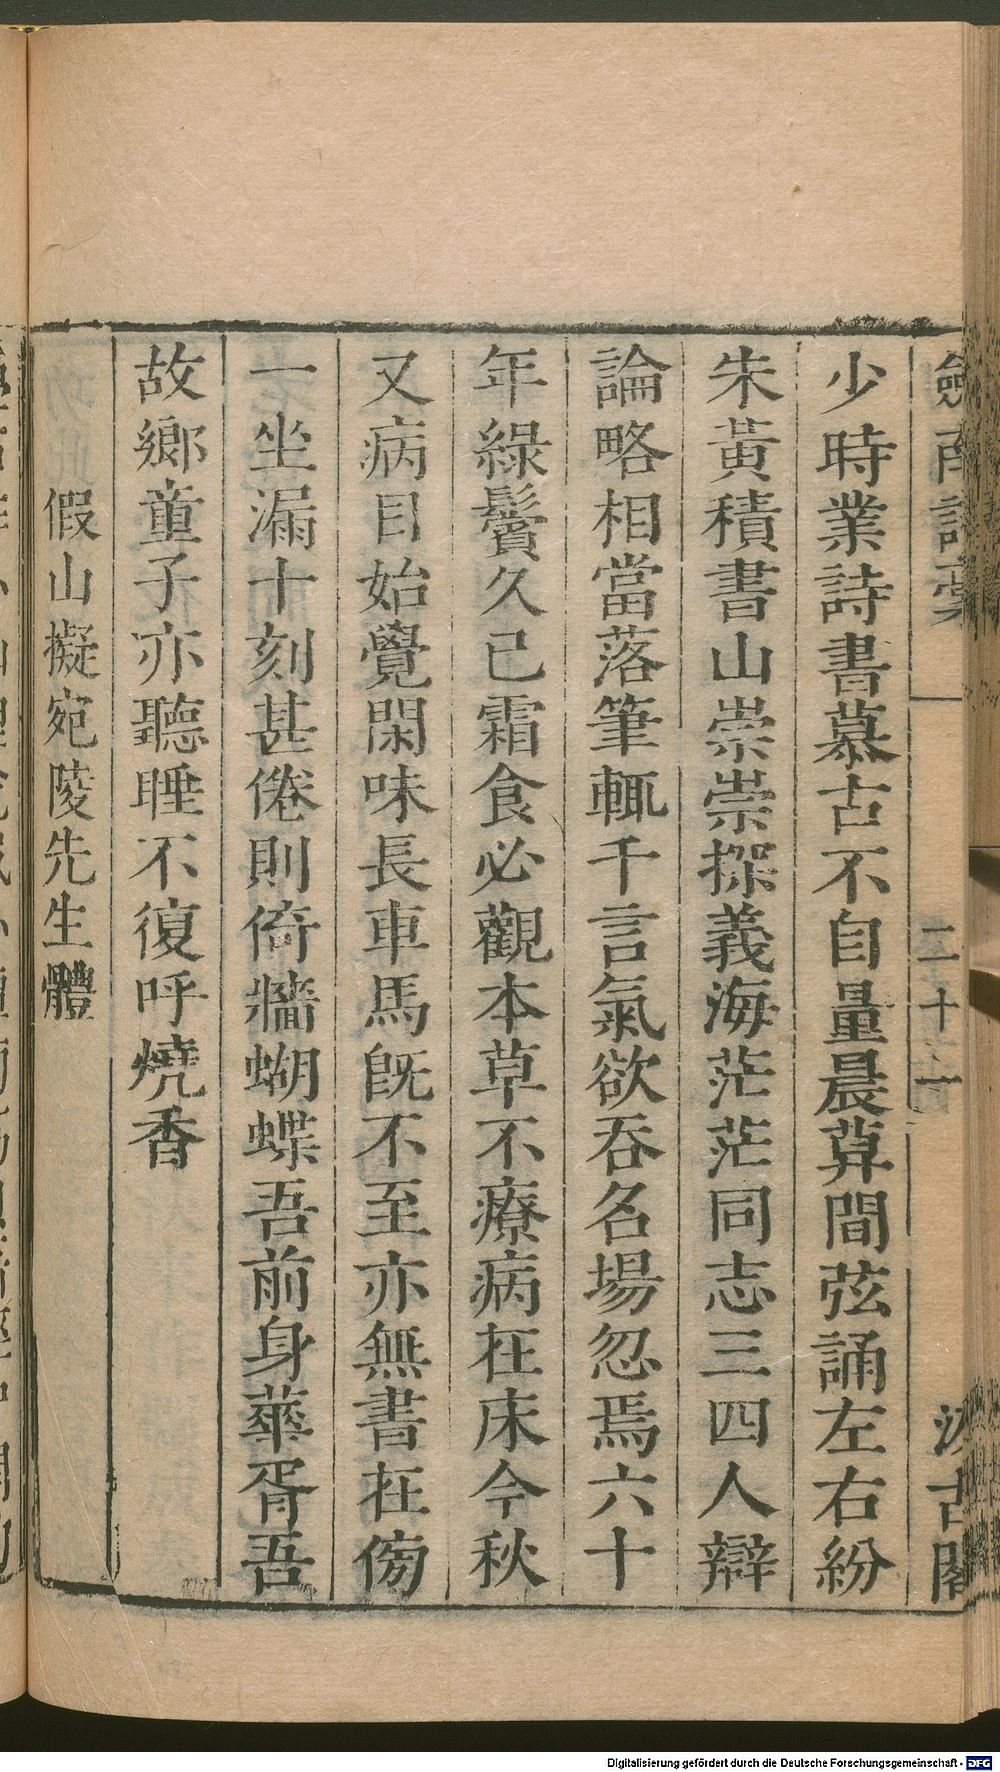 劍南詩稾
二十一
汲古閣
少時業詩書慕古不自量晨萛間弦誦左右紛
朱黃積書山崇崇探義海茫茫同志三四人辯
論略相當落筆輒千言氣欲吞名場忽焉六十
年綠鬢久已霜食必觀本草不療病在床今秋
又病目始覺閑味長車馬旣不至亦無書在傍
一坐漏十刻甚倦則倚牆蝴蝶吾前身華胥吾
故鄉童子亦聽睡不復呼燒香
假山擬宛陵先生體
Digitalisierung gefördert durch die Deutsche Forschungsgemeinschaft - DFG